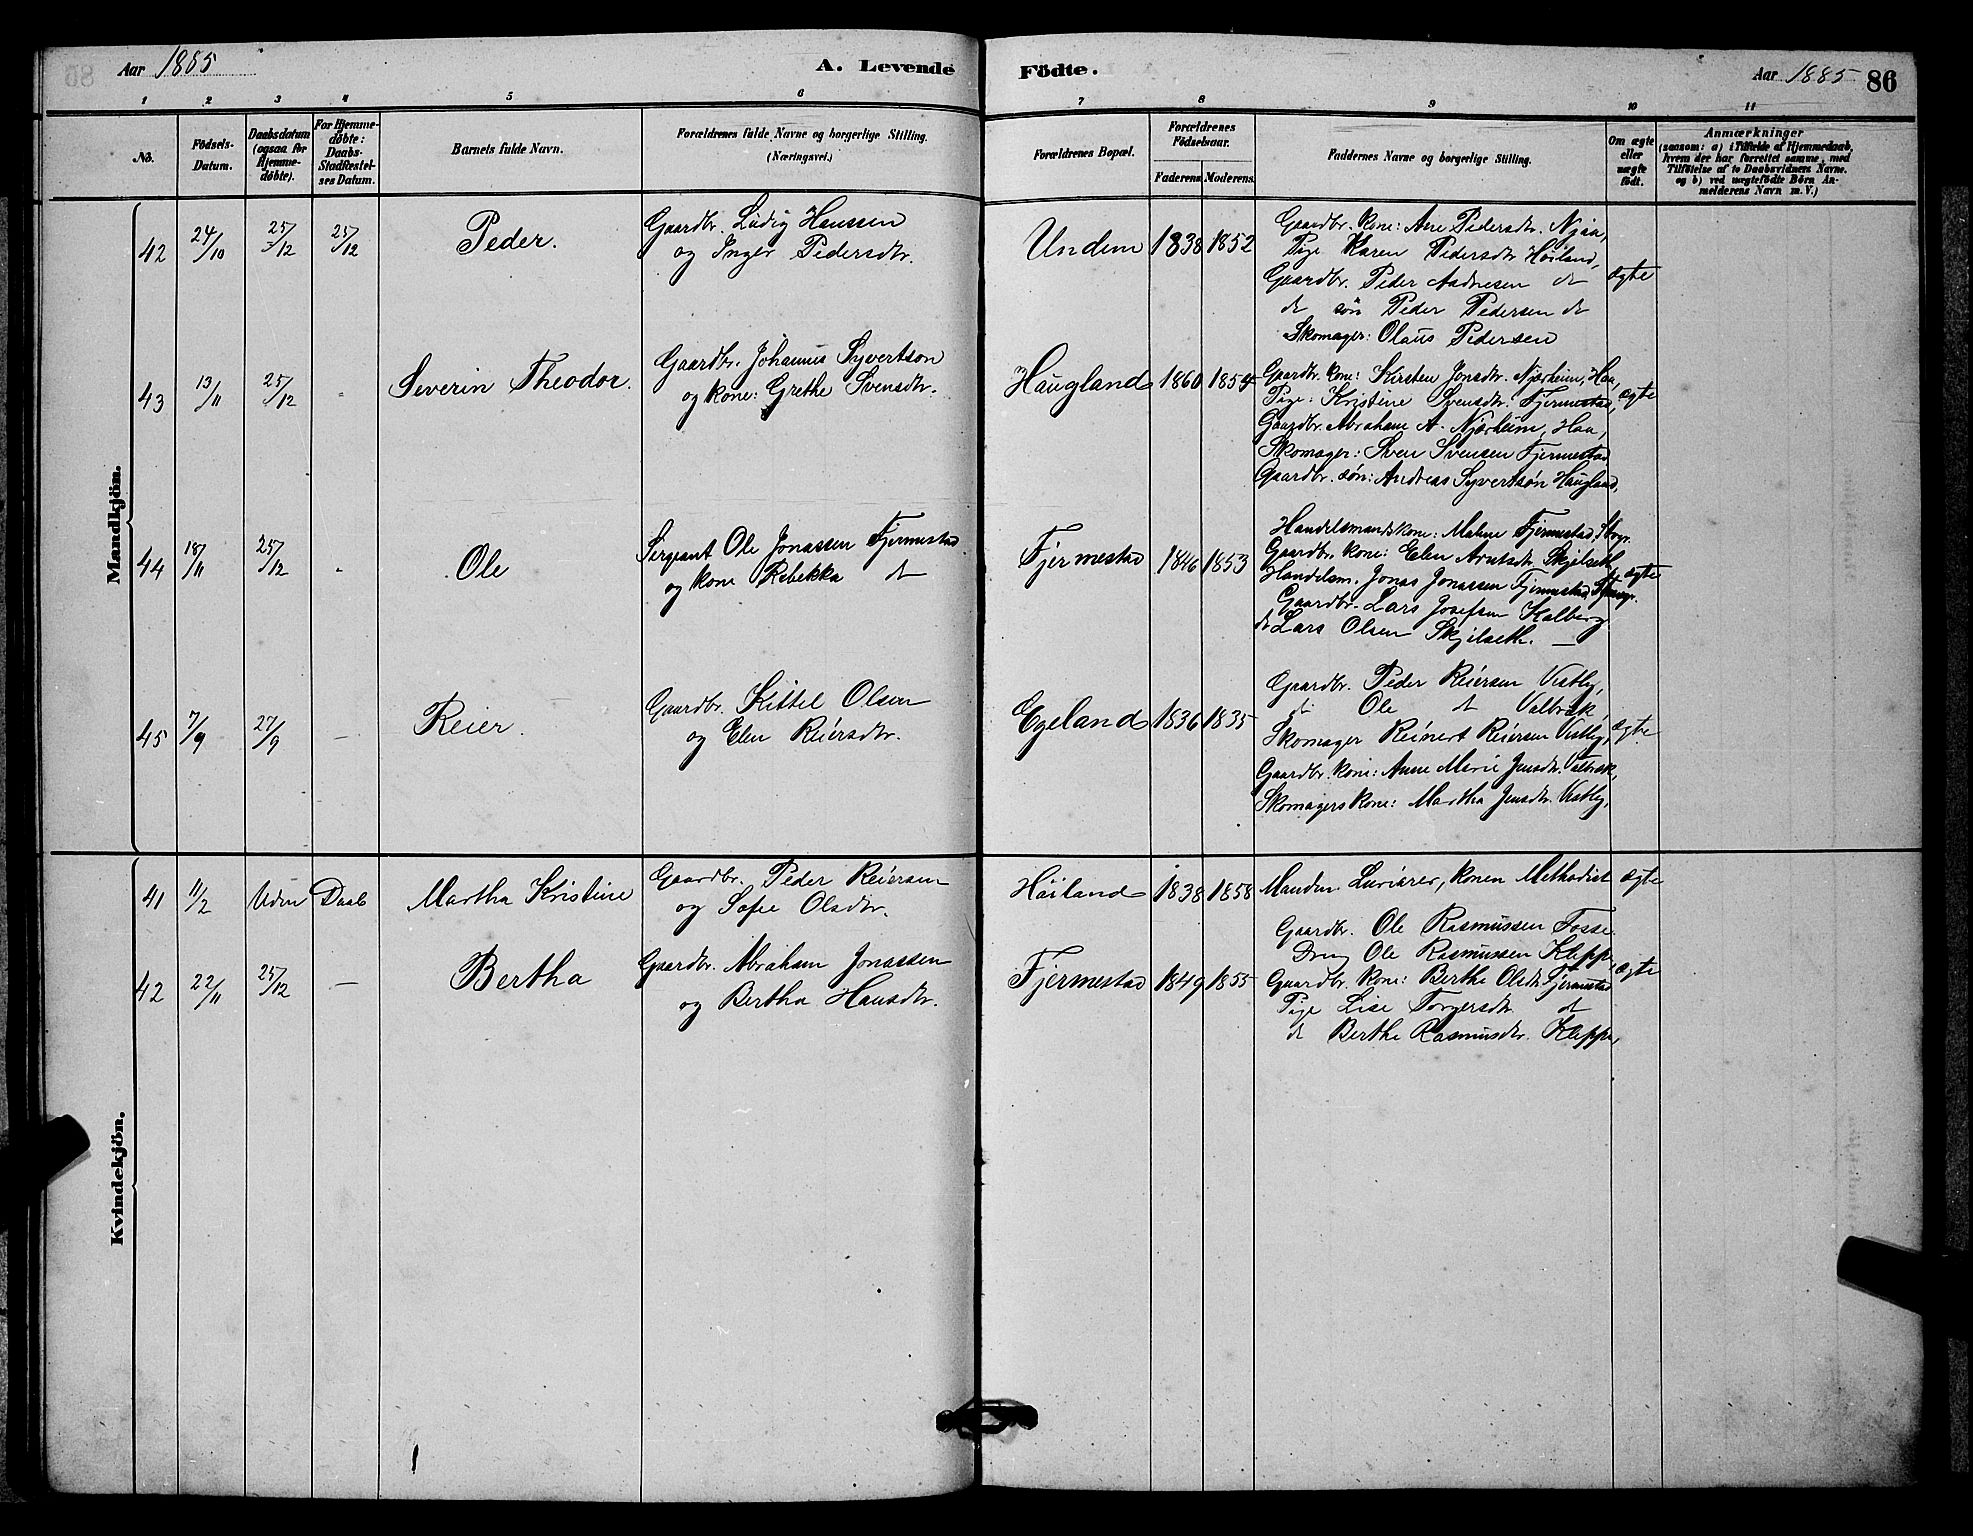 Aar 1885
A. Levende Födte.
Aar 1885 86
1 2 3 4 5 6 7 8 9 10 11
No.
Födsels-Datum.
Daabsdatum (ogsaa for Hjemme-döbte).
For Hjemme-döbte: Daabs-Stadfæstel-ses Datum.
Barnets fulde Navn.
Forældrenes fulde Navne og borgerlige Stilling.
(Næringsvei.)
Forældrenes Bopæl.
Forældrenes Födselsaar.
Faderens. Moderens.
Faddernes Navne og borgerlige Stilling.
Om ægte eller uægte födt.
Anmærkninger
(saasom: a) i Tilfælde af Hjemmedaab,
hvem der har forrettet samme, med
Tilföielse af to Daabsvidners Navne.
og b) ved uægtefödte Börn An-
melderens Navn m. V.)
Mandkjön.
42 24/10 25/12 25/12 Peder.
Gaardbr. Ludig Hanssen
og Inger Pedersdtr.
Undem 1838 1852
Gaardbr. kone: Ane Pedersdtr. Njaa,
Pige Karen Pedersdtr Höiland,
Gaardbr. Peder Aadnesen dt
dt sön Peder Pedersen dt
Skomager: Olaus Pedersen
ægte
43 13/11 25/12 - Severin Theodor.
Gaardbr. Johannes Syvertson
og kone: Grethe Svensdtr.
Haugland 1860 1854
Gaardbr. kone: Kirsten Jonsdtr. Njærheim, Haa,
Pige: Kristine Svensdtr. Fjermestad,
Gaardbr. Abraham A. Njærheim, Haa,
Skomager: Sven Svensen Fjermestad
Gaardbr. søn: Andreas Syvertsön Haugland,
ægte
44 18/11 25/12 - Ole
Sergeant Ole Jonassen Fjermestad
og kone Rebekka dt
Fjermestad 1846 1853
Handelsmandskone: Malene Fjermestad,
Gaardbr. kone: Elen Arntsdtr. Skjelseth,
Handelsm. Jonas Jonassen Fjermestad,
Gaardbr. Lars Josefsen Kalberg
dt Lars Olsen Skjelseth. —
ægte
45 7/9 27/9 — Reier.
Gaardbr. Kittel Olsen
og Elen Reiersdtr.
Egeland 1836 1835
Gaardbr. Peder Reiersen Vestly,
dt Ole dt Valbræk,
Skomager Reinert Reiersen Vestly,
Gaardbr. kone: Anne Marie Jensdtr. Valbræk,
Skomagers kone: Martha Jensdtr. Vestly,
ægte
Kvindekjön.
41 11/2 Uden Daab Martha Kristine
Gaardbr. Peder Reiersen
og Sofie Olsdtr.
Höiland 1838 1858
Manden konen Methodist
ægte
42 22/11 25/12 — Bertha
Gaardbr. Abraham Jonassen
og Bertha Hansdtr.
Fjermestad 1849 1855
Gaardbr. Ole Rasmussen Fosse
Dreng Ole Rasmussen Kleppe,
Gaardbr. kone: Bertha Olsdtr. Fjermestad
Pige Lise Torgersdtr dt
dt Berthe Rasmusdtr. Kleppe,
ægte